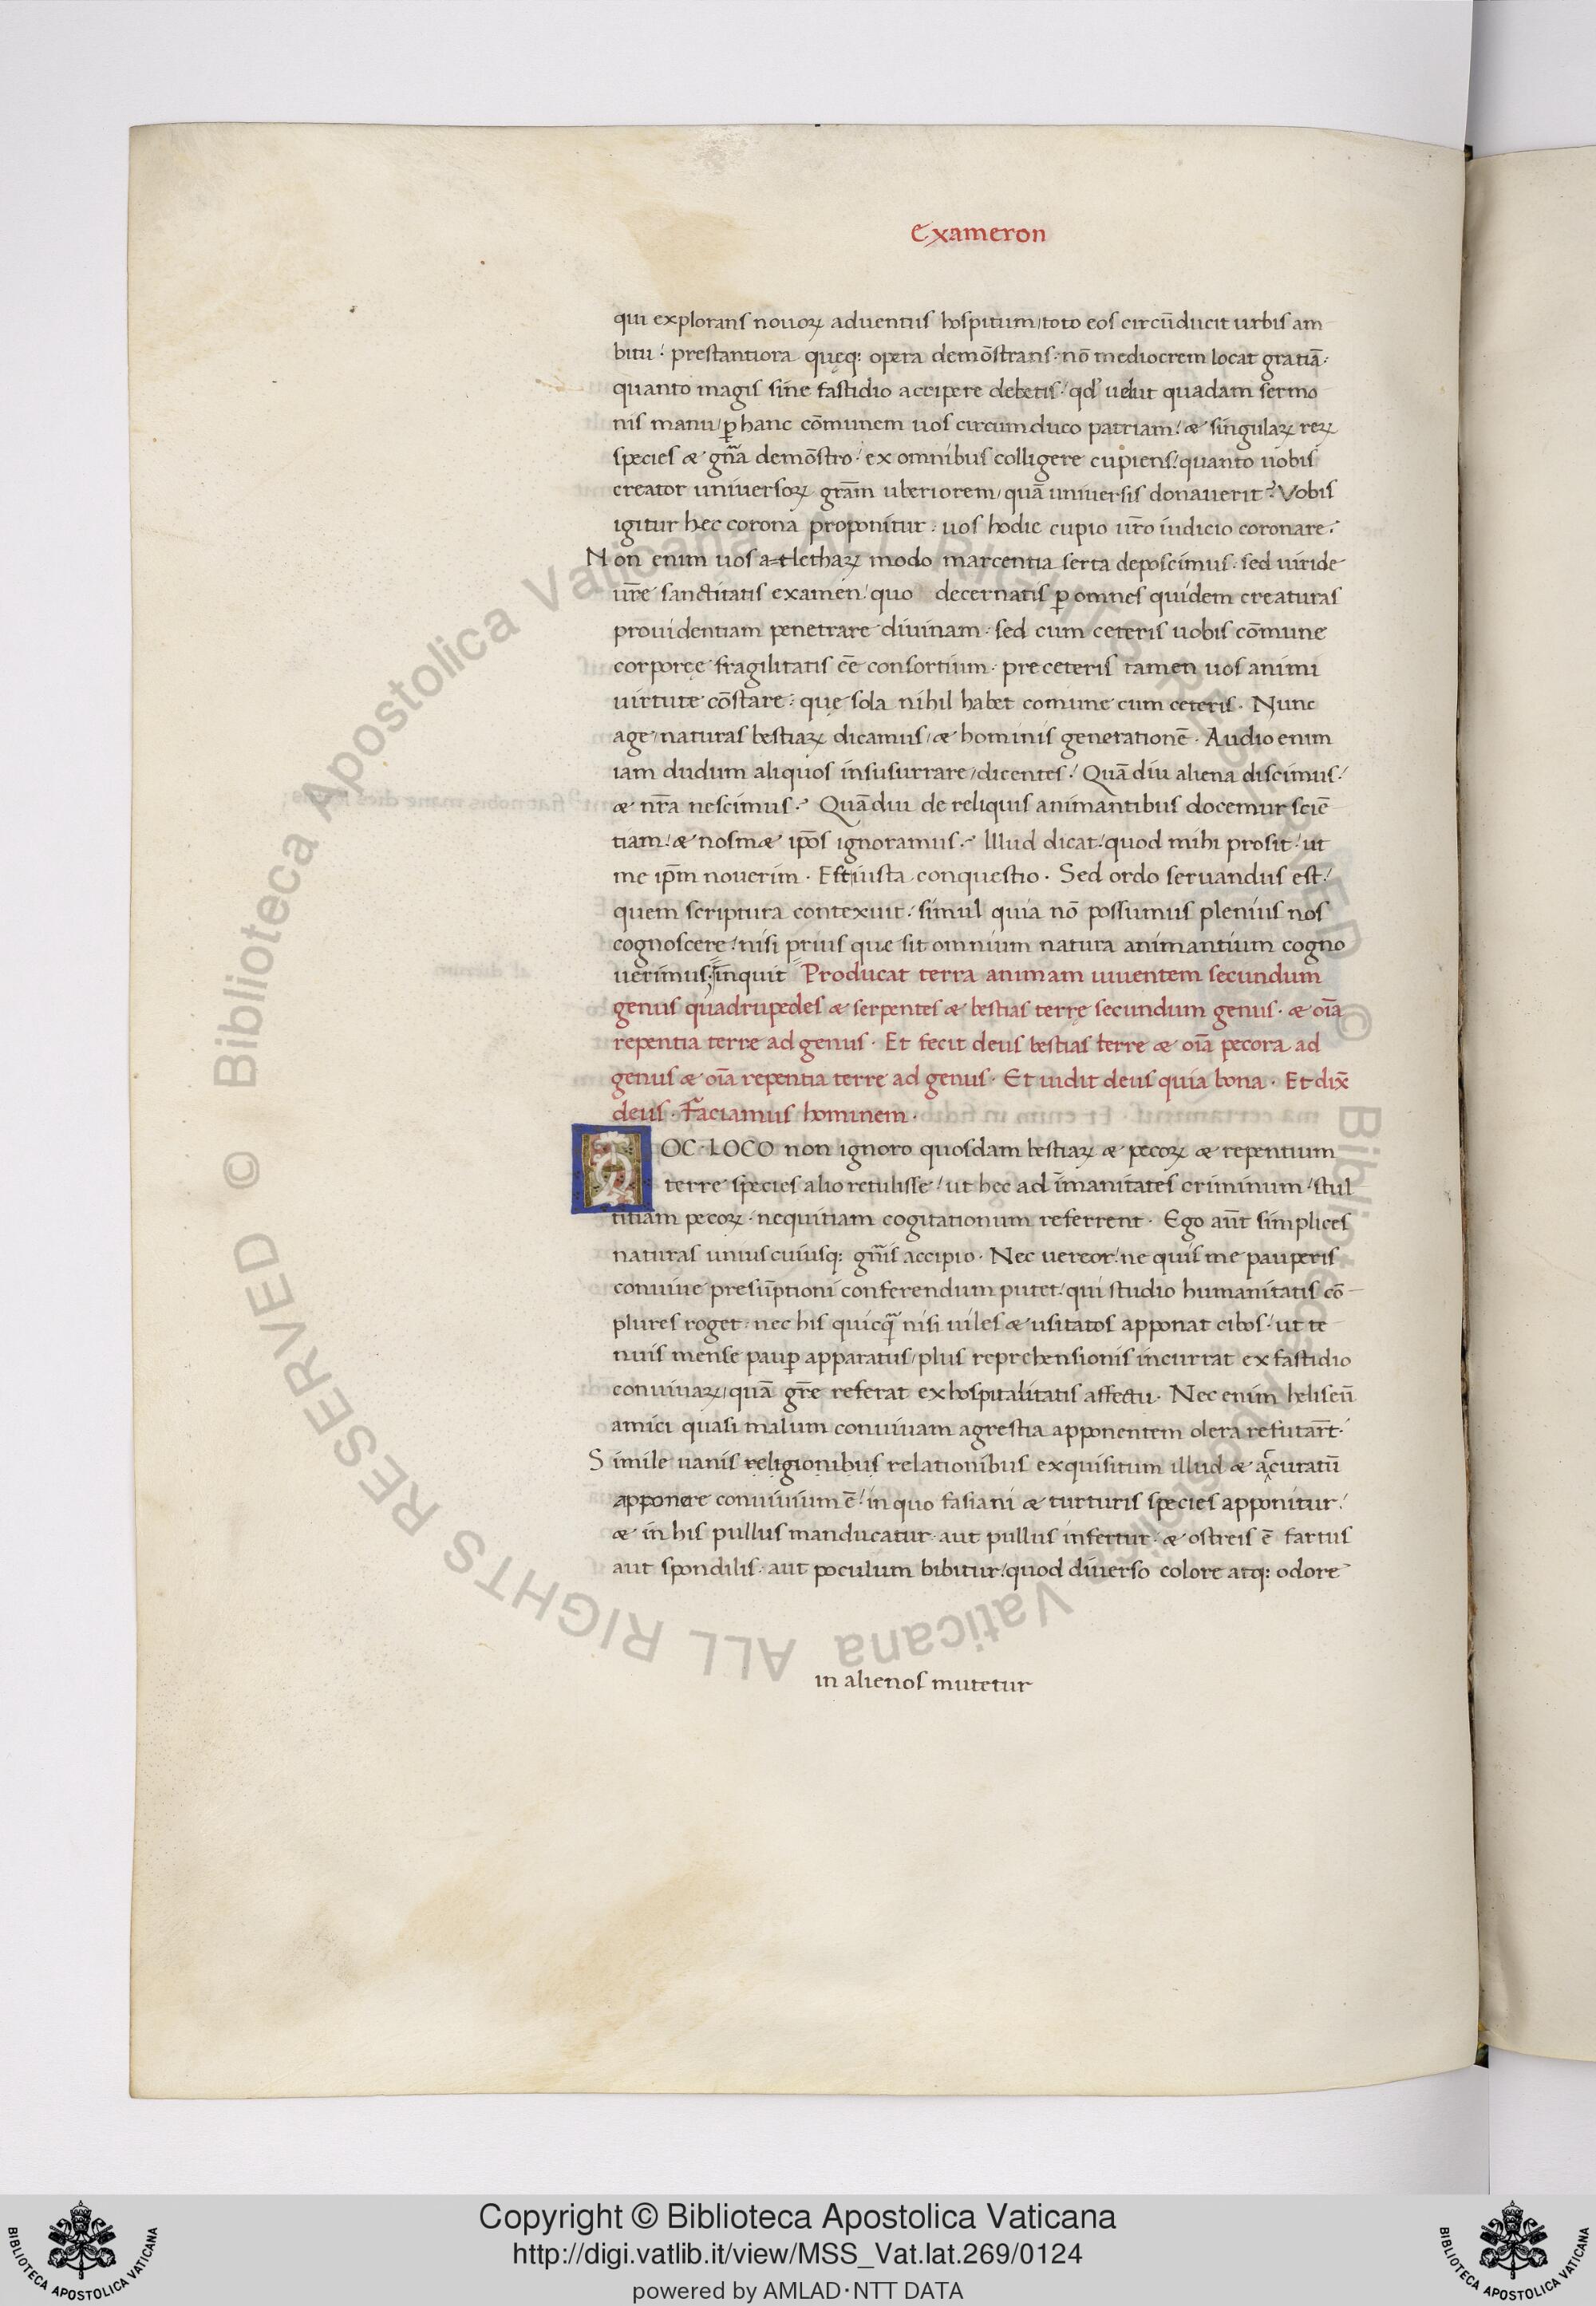 Exameron
qui explorans nouoꝝ aduentus hospitum/toto eos circūducit urbis am
bitu: prestantiora quęq: opera demōstrans· nō mediocrem locat gratiā·
quanto magis sine fastidio accipere debetis/ qd' uelut quadam sermo
nis manu/ ꝑ hanc cōmunem uos circumduco patriam/ & singulaꝝ reꝝ
species & gn̄a demōstro/ ex omnibus colligere cupiens/ quanto uobis
creator uniuersoꝝ grām uberiorem/ quā uniuersis donauerit? Vobis
igitur hec corona proponitur: uos hodie cupio ur̄o iudicio coronare·
Non enim uos a=tlethaꝝ modo marcentia serta deposcimus· sed uiride
ur̄e sanctitatis examen/ quo decernatis ꝑ omnes quidem creaturas
prouidentiam penetrare diuinam· sed cum ceteris uobis cōmune
corporęe fragilitatis ēe consortium· pre ceteris tamen uos animi
uirtute cōstare: quę sola nihil habet comune cum ceteris· Nunc
age/ naturas bestiaꝝ dicamus/ & hominis generationē· Audio enim
iam dudum aliquos insusurrare/ dicentes/ Quā diu aliena discimus/
& nr̄a nescimus? Quā diu de reliquis animantibus docemur sciē
tiam/ & nosm& ip̄os ignoramus? Illud dicat/ quod mihi prosit/ ut
me ip̄m nouerim· Est iusta conquestio· Sed ordo seruandus est/
quem scriptura contexuit/ simul quia nō possumus plenius nos
cognoscere/ nisi prius que sit omnium natura animantium cogno
uerimus; inquit Producat terra animam uiuentem secundum
genus quadrupedes & serpentes & bestias terrę secundum genus· & oīa
repentia terre ad genus· Et fecit deus bestias terre & oīa pecora ad
genus & oīa repentia terre ad genus· Et uidit deus quia bona· Et dix̄
deus· Faciamus hominem·
HOC·LOCO non ignoro quosdam bestiaꝝ & pecoꝝ & repentium
terre species alio retulisse/ ut hec ad īmanitates criminum/ stul
titiam pecoꝝ· nequitiam cogitationum referrent· Ego aūt simplices
naturas uniuscuiusq: gn̄is accipio· Nec uereor/ ne quis me pauperis
conuiue presūptioni conferendum putet/ qui studio humanitatis cō
plures roget· nec his quicq̄ nisi uiles & usitatos apponat cibos/ ut te
nuis mense pauꝑ apparatus/ plus reprehensionis incurrat ex fastidio
conuiuaꝝ/ quā gr̄e referat ex hospitalitatis affectu· Nec enim heliseū
amici quasi malum conuiuam agrestia apponentem olera refutar̄t·
Simile uanis religionibus relationibus exquisitum illud & accuratū
apponere conuiuium ē/ in quo fasiani & turturis species apponitur/
& in his pullus manducatur· aut pullus infertur· & ostreis ē fartus
aut spondilis· aut poculum bibitur/ quod diuerso colore atq: odore
in alienos mutetur
© Biblioteca Apostolica Vaticana ALL RIGHTS RESERVED © Biblioteca Apostolica Vaticana ALL RIGHTS RESERVED
Copyright © Biblioteca Apostolica Vaticana
http://digi.vatlib.it/view/MSS_Vat.lat.269/0124
powered by AMLAD·NTT DATA
BIBLIOTECA APOSTOLICA VATICANA
BIBLIOTECA APOSTOLICA VATICANA